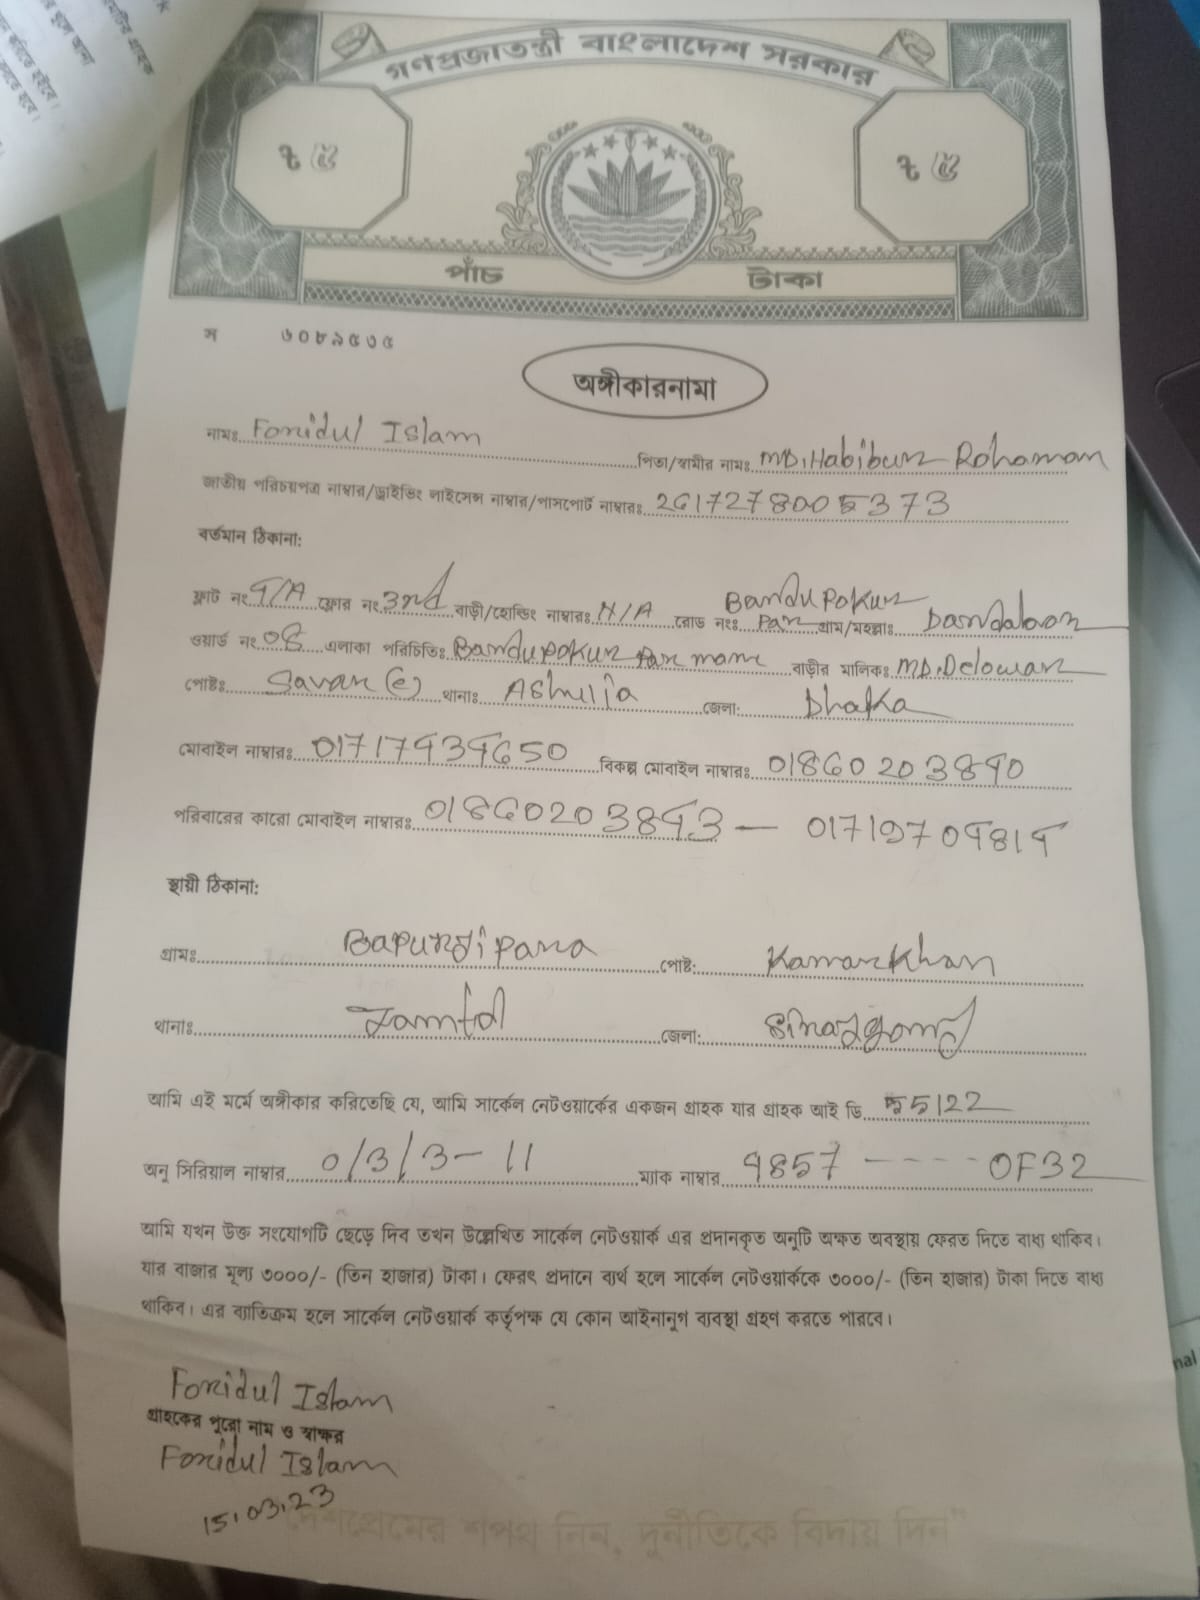 গণপ্রজাতন্ত্রী বাংলাদেশ সরকার
৳ ৫ ৳ ৫
পাঁচ টাকা
স ৬০৮৯৫৩৫
অঙ্গীকারনামা
নামঃ Foridul Islam পিতা/স্বামীর নামঃ MD. Habibur Rohaman
জাতীয় পরিচয়পত্র নাম্বার/ড্রাইভিং লাইসেন্স নাম্বার/পাসপোর্ট নাম্বারঃ 2617278005373
বর্তমান ঠিকানা:
ফ্লাট নং 4/A ফ্লোর নং 3rd বাড়ী/হোল্ডিং নাম্বারঃ N/A রোড নংঃ Bandupokur Par গ্রাম/মহল্লাঃ
ওয়ার্ড নং এলাকা পরিচিতিঃ Bandupokur Par বাড়ীর মালিকঃ MD. Delowar
পোষ্টঃ Savar (c) থানাঃ Ashulia জেলা: Dhaka
মোবাইল নাম্বারঃ 01717434650 বিকল্প মোবাইল নাম্বারঃ 01860203840
পরিবারের কারো মোবাইল নাম্বারঃ 01860203843 — 01719704814
স্থায়ী ঠিকানা:
গ্রামঃ পোষ্ট: Kamarkhan
থানাঃ জেলা:
আমি এই মর্মে অঙ্গীকার করিতেছি যে, আমি সার্কেল নেটওয়ার্কের একজন গ্রাহক যার গ্রাহক আই ডি 55122
অনু সিরিয়াল নাম্বার 0/3/3-11 ম্যাক নাম্বার 4857 ---- 0F32
আমি যখন উক্ত সংযোগটি ছেড়ে দিব তখন উল্লেখিত সার্কেল নেটওয়ার্ক এর প্রদানকৃত অনুটি অক্ষত অবস্থায় ফেরত দিতে বাধ্য থাকিব।
যার বাজার মূল্য ৩০০০/- (তিন হাজার) টাকা। ফেরৎ প্রদানে ব্যর্থ হলে সার্কেল নেটওয়ার্ককে ৩০০০/- (তিন হাজার) টাকা দিতে বাধ্য
থাকিব। এর ব্যাতিক্রম হলে সার্কেল নেটওয়ার্ক কর্তৃপক্ষ যে কোন আইনানুগ ব্যবস্থা গ্রহণ করতে পারবে।
Foridul Islam
গ্রাহকের পুরো নাম ও স্বাক্ষর
Foridul Islam
15.03.23
"দেশপ্রেমের শপথ নিন, দুর্নীতিকে বিদায় দিন"